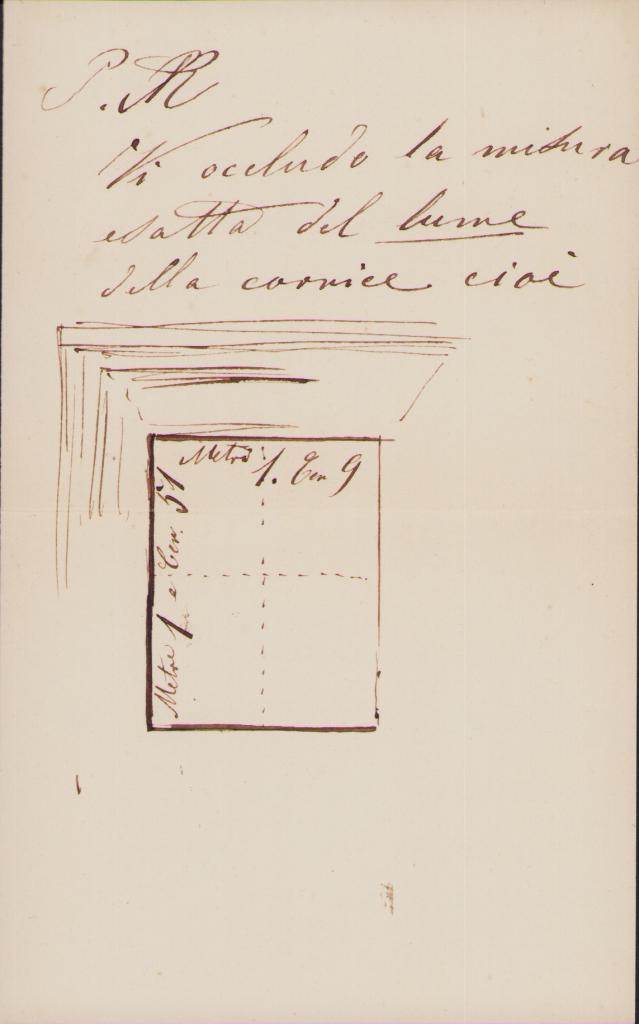 P. R
Vi occludo la misura
esatta del lume
della cornice cioè
Metro 1. Cen 9
Metro 1 e Cen. 51